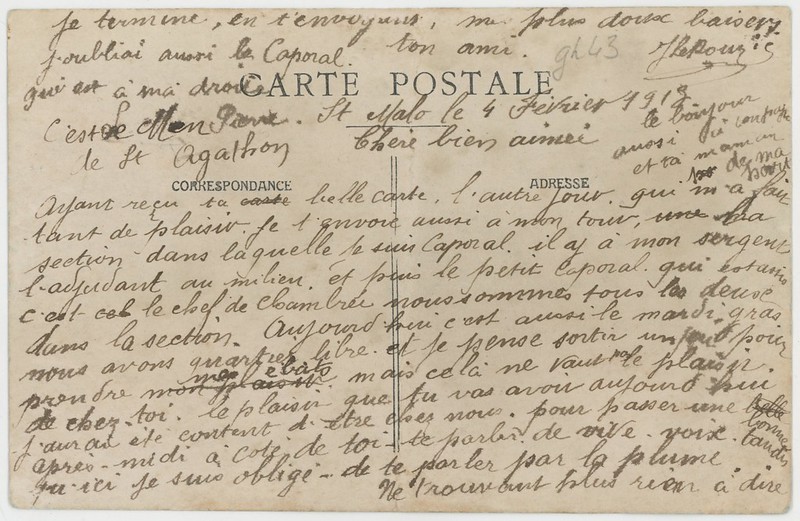 je termine, en t'envoyant, me plus doux baisers
j'oubliai aussi le Caporal. ton ami. JLeRouzic
qui est à ma droite gh43
CARTE POSTALE
C'est le Men Pierre. St Malo le 4 Février 1913
de St Agathon Chère bien aimée
le bonjour
aussi à
et ta maman
de ma
part
CORRESPONDANCE ADRESSE
Ayant reçu ta carte belle carte, l'autre jour. qui m'a fait
tant de plaisir. Je t'envoie aussi à mon tour, une ma
section dans laquelle je suis Caporal. il a y à mon sergent
l'adjudant au milieu. et puis le petit Caporal. qui est assis
c'est cel le chef de Chambrée nous sommes tous les deux
dans la section. Aujourd'hui c'est aussi le mardi gras
nous avons quartier libre. et je pense sortir un peut pour
prendre mon plaisir. mes ebats mais celà ne vaut pas le plaisir.
de chez toi. le plaisir que tu vas avoir aujourd'hui
j'aurai été content d'être chez nous. pour passer une belle bonne
après-midi à coté de toi - te parler de vive voix. tandis
qu'ici je suis obligé - de te parler par la plume
Ne trouvant plus rien à dire